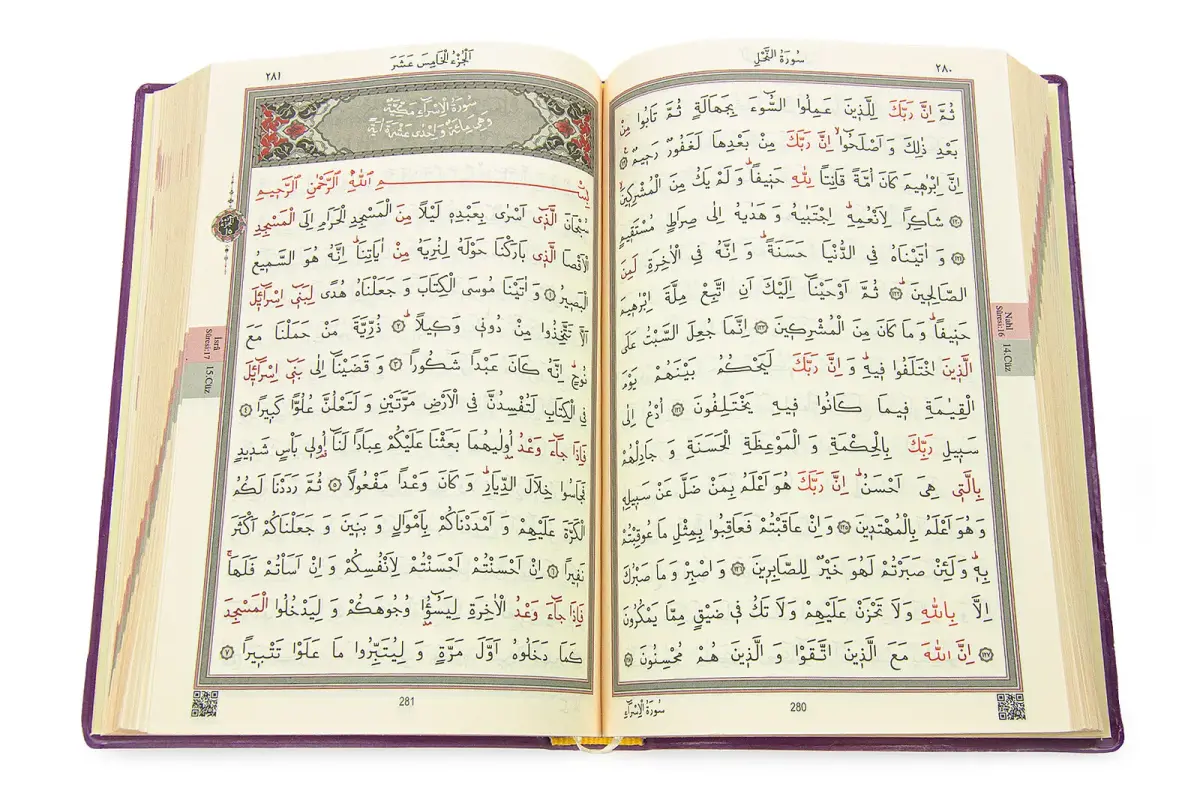 سُورَةُ النَّحْلِ
٢٨٠
ثُمَّ اِنَّ رَبَّكَ لِلَّذ۪ينَ عَمِلُوا السُّٓوءَ بِجَهَالَةٍ ثُمَّ تَابُوا مِنْ
بَعْدِ ذٰلِكَ وَ اَصْلَحُٓوا اِنَّ رَبَّكَ مِنْ بَعْدِهَا لَغَفُورٌ رَح۪يمٌ ﴿١١٩﴾
اِنَّ اِبْرٰه۪يمَ كَانَ اُمَّةً قَانِتاً لِلّٰهِ حَن۪يفاًۜ وَ لَمْ يَكُ مِنَ الْمُشْرِك۪ينَ
﴿١٢٠﴾ شَاكِرًا لِاَنْعُمِهِۜ اِجْتَبٰيهُ وَ هَدٰيهُ اِلٰى صِرَاطٍ مُسْتَق۪يمٍ
﴿١٢١﴾ وَ اٰتَيْنَاهُ فِي الدُّنْيَا حَسَنَةًۜ وَ اِنَّهُ فِي الْاٰخِرَةِ لَمِنَ
الصَّالِح۪ينَ ﴿١٢٢﴾ ثُمَّ اَوْحَيْنَٓا اِلَيْكَ اَنِ اتَّبِعْ مِلَّةَ اِبْرٰه۪يمَ
حَن۪يفاًۜ وَ مَا كَانَ مِنَ الْمُشْرِك۪ينَ ﴿١٢٣﴾ اِنَّمَا جُعِلَ السَّبْتُ عَلَى
الَّذ۪ينَ اخْتَلَفُوا ف۪يهِۜ وَ اِنَّ رَبَّكَ لَيَحْكُمُ بَيْنَهُمْ يَوْمَ
الْقِيٰمَةِ ف۪يمَا كَانُوا ف۪يهِ يَخْتَلِفُونَ ﴿١٢٤﴾ اُدْعُ اِلٰى
سَب۪يلِ رَبِّكَ بِالْحِكْمَةِ وَ الْمَوْعِظَةِ الْحَسَنَةِ وَ جَادِلْهُمْ
بِالَّت۪ي هِيَ اَحْسَنُۜ اِنَّ رَبَّكَ هُوَ اَعْلَمُ بِمَنْ ضَلَّ عَنْ سَب۪يلِه۪
وَ هُوَ اَعْلَمُ بِالْمُهْتَد۪ينَ ﴿١٢٥﴾ وَ اِنْ عَاقَبْتُمْ فَعَاقِبُوا بِمِثْلِ مَا عُوقِبْتُمْ
بِه۪ۜ وَ لَئِنْ صَبَرْتُمْ لَهُوَ خَيْرٌ لِلصَّابِر۪ينَ ﴿١٢٦﴾ وَ اصْبِرْ وَ مَا صَبْرُكَ
اِلَّا بِاللّٰهِ وَ لَا تَحْزَنْ عَلَيْهِمْ وَ لَا تَكُ ف۪ي ضَيْقٍ مِمَّا يَمْكُرُونَ
﴿١٢٧﴾ اِنَّ اللّٰهَ مَعَ الَّذ۪ينَ اتَّقَوْا وَ الَّذ۪ينَ هُمْ مُحْسِنُونَ ﴿١٢٨﴾
Nahl
Sûresi:16
14.Cüz
280
سُورَةُ الْاِسْرَٓاءِ
اَلْجُزْءُ الْخَامِسَ عَشَرَ
٢٨١
سُورَةُ الْاِسْرَٓاءِ مَكِّيَّةٌ
وَ هِيَ مِائَةٌ وَ اِحْدٰى عَشْرَةَ اٰيَةً
بِسْمِ اللّٰهِ الرَّحْمٰنِ الرَّح۪يمِ
سُبْحَانَ الَّذ۪ٓي اَسْرٰى بِعَبْدِه۪ لَيْلاً مِنَ الْمَسْجِدِ الْحَرَامِ اِلَى الْمَسْجِدِ
الْاَقْصَا الَّذ۪ي بَارَكْنَا حَوْلَهُ لِنُرِيَهُ مِنْ اٰيَاتِنَاۜ اِنَّهُ هُوَ السَّم۪يعُ
الْبَص۪يرُ ﴿١﴾ وَ اٰتَيْنَا مُوسَى الْكِتَابَ وَ جَعَلْنَاهُ هُدًى لِبَن۪ٓي اِسْرَٓائ۪لَ
اَلَّا تَتَّخِذُوا مِنْ دُون۪ي وَك۪يلاًۜ ﴿٢﴾ ذُرِّيَّةَ مَنْ حَمَلْنَا مَعَ
نُوحٍۜ اِنَّهُ كَانَ عَبْدًا شَكُورًا ﴿٣﴾ وَ قَضَيْنَٓا اِلٰى بَن۪ٓي اِسْرَٓائ۪لَ
فِي الْكِتَابِ لَتُفْسِدُنَّ فِي الْاَرْضِ مَرَّتَيْنِ وَ لَتَعْلُنَّ عُلُوًّا كَب۪يرًا ﴿٤﴾
فَاِذَا جَٓاءَ وَعْدُ اُو۫لٰيهُمَا بَعَثْنَا عَلَيْكُمْ عِبَادًا لَنَٓا اُو۬ل۪ي بَأْسٍ شَد۪يدٍ
فَجَاسُوا خِلَالَ الدِّيَارِۜ وَ كَانَ وَعْدًا مَفْعُولاً ﴿٥﴾ ثُمَّ رَدَدْنَا لَكُمُ
الْكَرَّةَ عَلَيْهِمْ وَ اَمْدَدْنَاكُمْ بِاَمْوَالٍ وَ بَن۪ينَ وَ جَعَلْنَاكُمْ اَكْثَرَ
نَف۪يرًا ﴿٦﴾ اِنْ اَحْسَنْتُمْ اَحْسَنْتُمْ لِاَنْفُسِكُمْ وَ اِنْ اَسَأْتُمْ فَلَهَاۜ
فَاِذَا جَٓاءَ وَعْدُ الْاٰخِرَةِ لِيَسُٓؤُ۫ا وُجُوهَكُمْ وَ لِيَدْخُلُوا الْمَسْجِدَ
كَمَا دَخَلُوهُ اَوَّلَ مَرَّةٍ وَ لِيُتَبِّرُوا مَا عَلَوْا تَتْب۪يرًا ﴿٧﴾
İsrâ
Sûresi:17
15.Cüz
281